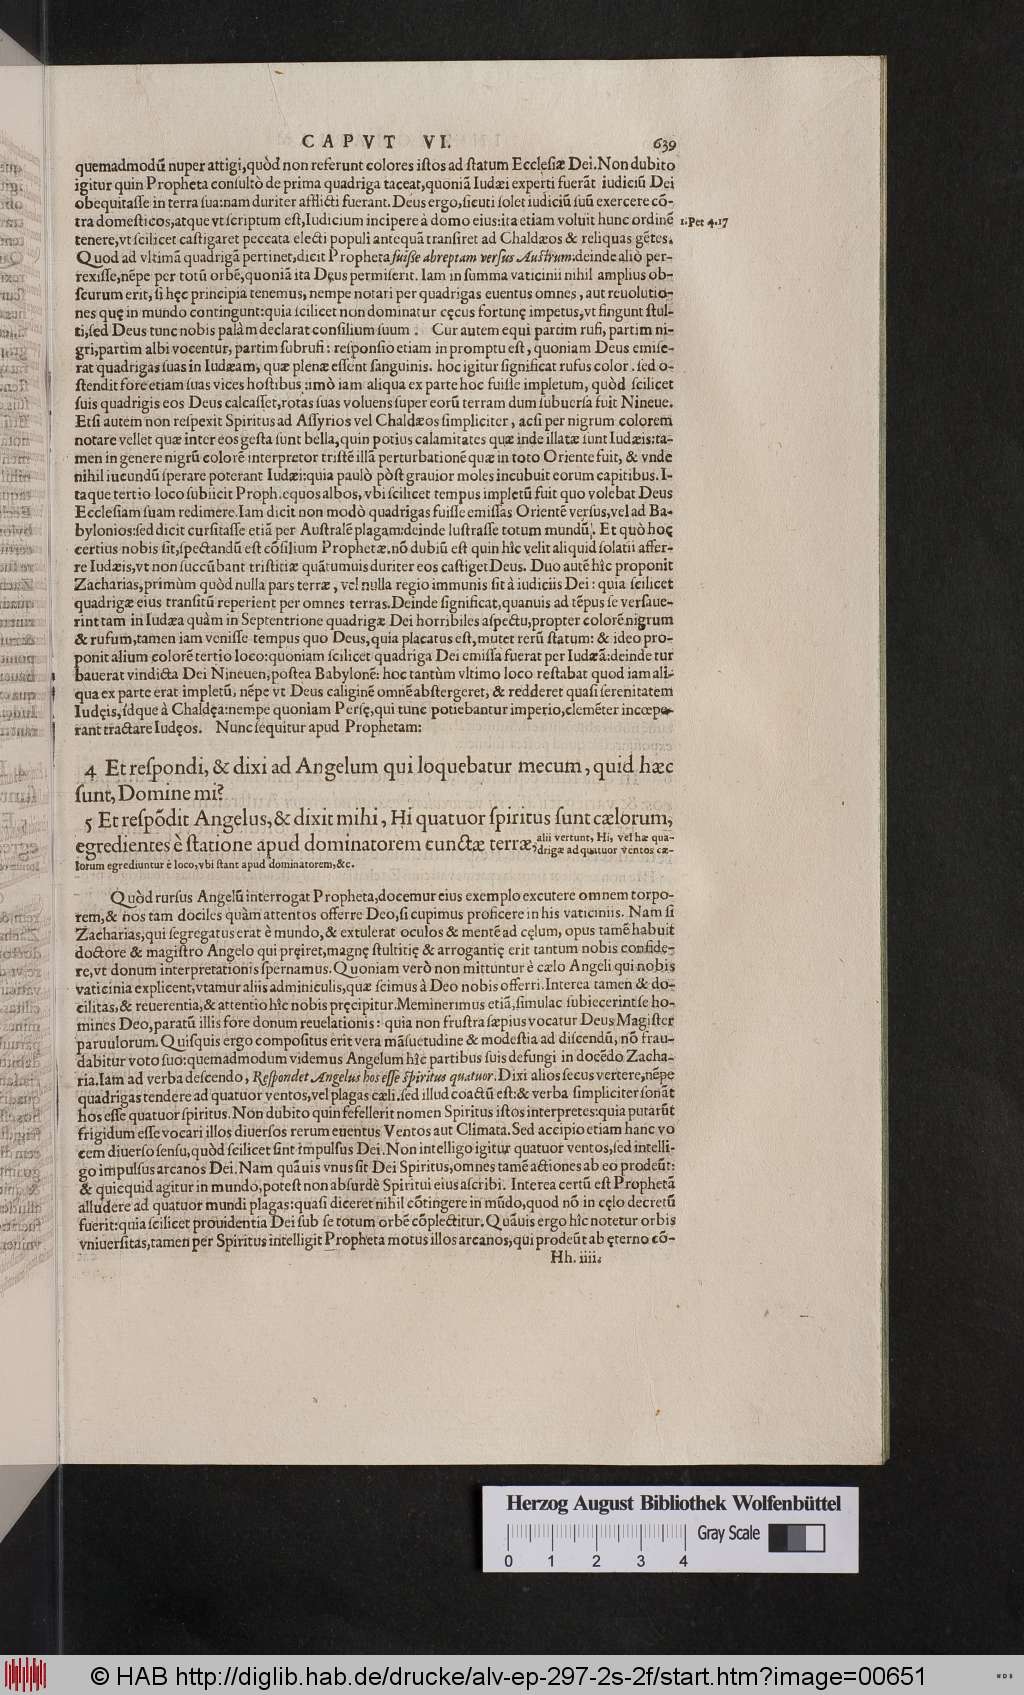 CAPVT VI. 639
quemadmodũ nuper attigi, quòd non referunt colores istos ad statum Ecclesiæ Dei. Non dubito
igitur quin Propheta consultò de prima quadriga taceat, quoniã Iudæi experti fuerãt iudiciũ Dei
obequitasse in terra sua: nam duriter afflicti fuerant. Deus ergo, sicuti solet iudiciũ suũ exercere cõ-
tra domesticos, atque vt scriptum est, Iudicium incipere à domo eius: ita etiam voluit hunc ordinẽ 1. Pet 4.17
tenere, vt scilicet castigaret peccata electi populi antequã transiret ad Chaldæos & reliquas gẽtes.
Quod ad vltimã quadrigã pertinet, dicit Propheta fuisse abreptam versus Austrum: deinde aliò per-
rexisse, nẽpe per totũ orbẽ, quoniã ita Dęus permiserit. Iam in summa vaticinii nihil amplius ob-
scurum erit, si hęc principia tenemus, nempe notari per quadrigas euentus omnes, aut reuolutio-
nes quę in mundo contingunt: quia scilicet non dominatur cęcus fortunę impetus, vt fingunt stul-
ti, sed Deus tunc nobis palàm declarat consilium suum. Cur autem equi partim rufi, partim ni-
gri, partim albi vocentur, partim subrufi: responsio etiam in promptu est, quoniam Deus emise-
rat quadrigas suas in Iudæam, quæ plenæ essent sanguinis. hoc igitur significat rufus color. sed o-
stendit fore etiam suas vices hostibus: imò iam aliqua ex parte hoc fuisse impletum, quòd scilicet
suis quadrigis eos Deus calcasset, rotas suas voluens super eorũ terram dum subuersa fuit Nineue.
Etsi autem non respexit Spiritus ad Assyrios vel Chaldæos simpliciter, acsi per nigrum colorem
notare vellet quæ inter eos gesta sunt bella, quin potius calamitates quæ inde illatæ sunt Iudæis: ta-
men in genere nigrũ colorẽ interpretor tristẽ illã perturbationẽ quæ in toto Oriente fuit, & vnde
nihil iucundũ sperare poterant Iudæi: quia paulò pòst grauior moles incubuit eorum capitibus. I-
taque tertio loco subiicit Proph. equos albos, vbi scilicet tempus impletũ fuit quo volebat Deus
Ecclesiam suam redimere. Iam dicit non modò quadrigas fuisse emissas Orientẽ versus, vel ad Ba-
bylonios: sed dicit cursitasse etiã per Australẽ plagam: deinde lustrasse totum mundũ. Et quò hoc
certius nobis sit, spectandũ est cõsilium Prophetæ. nõ dubiũ est quin hîc velit aliquid solatii affer-
re Iudæis, vt non succũbant tristitiæ quãtumuis duriter eos castiget Deus. Duo autẽ hîc proponit
Zacharias, primùm quòd nulla pars terræ, vel nulla regio immunis sit à iudiciis Dei: quia scilicet
quadrigæ eius transitũ reperient per omnes terras. Deinde significat, quanuis ad tẽpus se versaue-
rint tam in Iudæa quàm in Septentrione quadrigæ Dei horribiles aspectu, propter colorẽ nigrum
& rufum, tamen iam venisse tempus quo Deus, quia placatus est, mutet rerũ statum: & ideo pro-
ponit alium colorẽ tertio loco: quoniam scilicet quadriga Dei emissa fuerat per Iudæã: deinde tur
bauerat vindicta Dei Nineuen, postea Babylonẽ: hoc tantùm vltimo loco restabat quod iam ali-
qua ex parte erat impletũ, nẽpe vt Deus caliginẽ omnẽ abstergeret, & redderet quasi serenitatem
Iudęis, idque à Chaldęa: nempe quoniam Persę, qui tunc potiebantur imperio, clemẽter incœpe-
rant tractare Iudęos. Nunc sequitur apud Prophetam:
4 Et respondi, & dixi ad Angelum qui loquebatur mecum, quid hæc
sunt, Domine mi?
5 Et respõdit Angelus, & dixit mihi, Hi quatuor spiritus sunt cælorum,
egredientes è statione apud dominatorem cunctæ terræ, alii vertunt, Hi, vel hæ qua-
drigæ ad quatuor ventos cæ-
lorum egrediuntur è loco, vbi stant apud dominatorem, &c.
Quòd rursus Angelũ interrogat Propheta, docemur eius exemplo excutere omnem torpo-
rem, & nos tam dociles quàm attentos offerre Deo, si cupimus proficere in his vaticiniis. Nam si
Zacharias, qui segregatus erat è mundo, & extulerat oculos & mentẽ ad cęlum, opus tamẽ habuit
doctore & magistro Angelo qui pręiret, magnę stultitię & arrogantię erit tantum nobis confide-
re, vt donum interpretationis spernamus. Quoniam verò non mittuntur è cælo Angeli qui nobis
vaticinia explicent, vtamur aliis adminiculis, quæ scimus à Deo nobis offerri. Interea tamen & do-
cilitas, & reuerentia, & attentio hîc nobis pręcipitur. Meminerimus etiã, simulac subiecerint se ho-
mines Deo, paratũ illis fore donum reuelationis: quia non frustra sæpius vocatur Deus Magister
paruulorum. Quisquis ergo compositus erit vera mãsuetudine & modestia ad discendũ, nõ frau-
dabitur voto suo: quemadmodum videmus Angelum hîc partibus suis defungi in docẽdo Zacha-
ria. Iam ad verba descendo, Respondet Angelus hos esse spiritus quatuor. Dixi alios secus vertere, nẽpe
quadrigas tendere ad quatuor ventos, vel plagas cæli. sed illud coactũ est: & verba simpliciter sonãt
hos esse quatuor spiritus. Non dubito quin fefellerit nomen Spiritus istos interpretes: quia putarũt
frigidum esse vocari illos diuersos rerum euentus Ventos aut Climata. Sed accipio etiam hanc vo
cem diuerso sensu, quòd scilicet sint impulsus Dei. Non intelligo igitur quatuor ventos, sed intelli-
go impulsus arcanos Dei. Nam quãuis vnus sit Dei Spiritus, omnes tamẽ actiones ab eo prodeũt:
& quicquid agitur in mundo, potest non absurdè Spiritui eius ascribi. Interea certũ est Prophetã
alludere ad quatuor mundi plagas: quasi diceret nihil cõtingere in mũdo, quod nõ in cęlo decretũ
fuerit: quia scilicet prouidentia Dei sub se totum orbẽ cõplectitur. Quãuis ergo hîc notetur orbis
vniuersitas, tamen per Spiritus intelligit Propheta motus illos arcanos, qui prodeũt ab ęterno cõ-
Hh. iiii.
Herzog August Bibliothek Wolfenbüttel
Gray Scale
0 1 2 3 4
© HAB http://diglib.hab.de/drucke/alv-ep-297-2s-2f/start.htm?image=00651
WDB